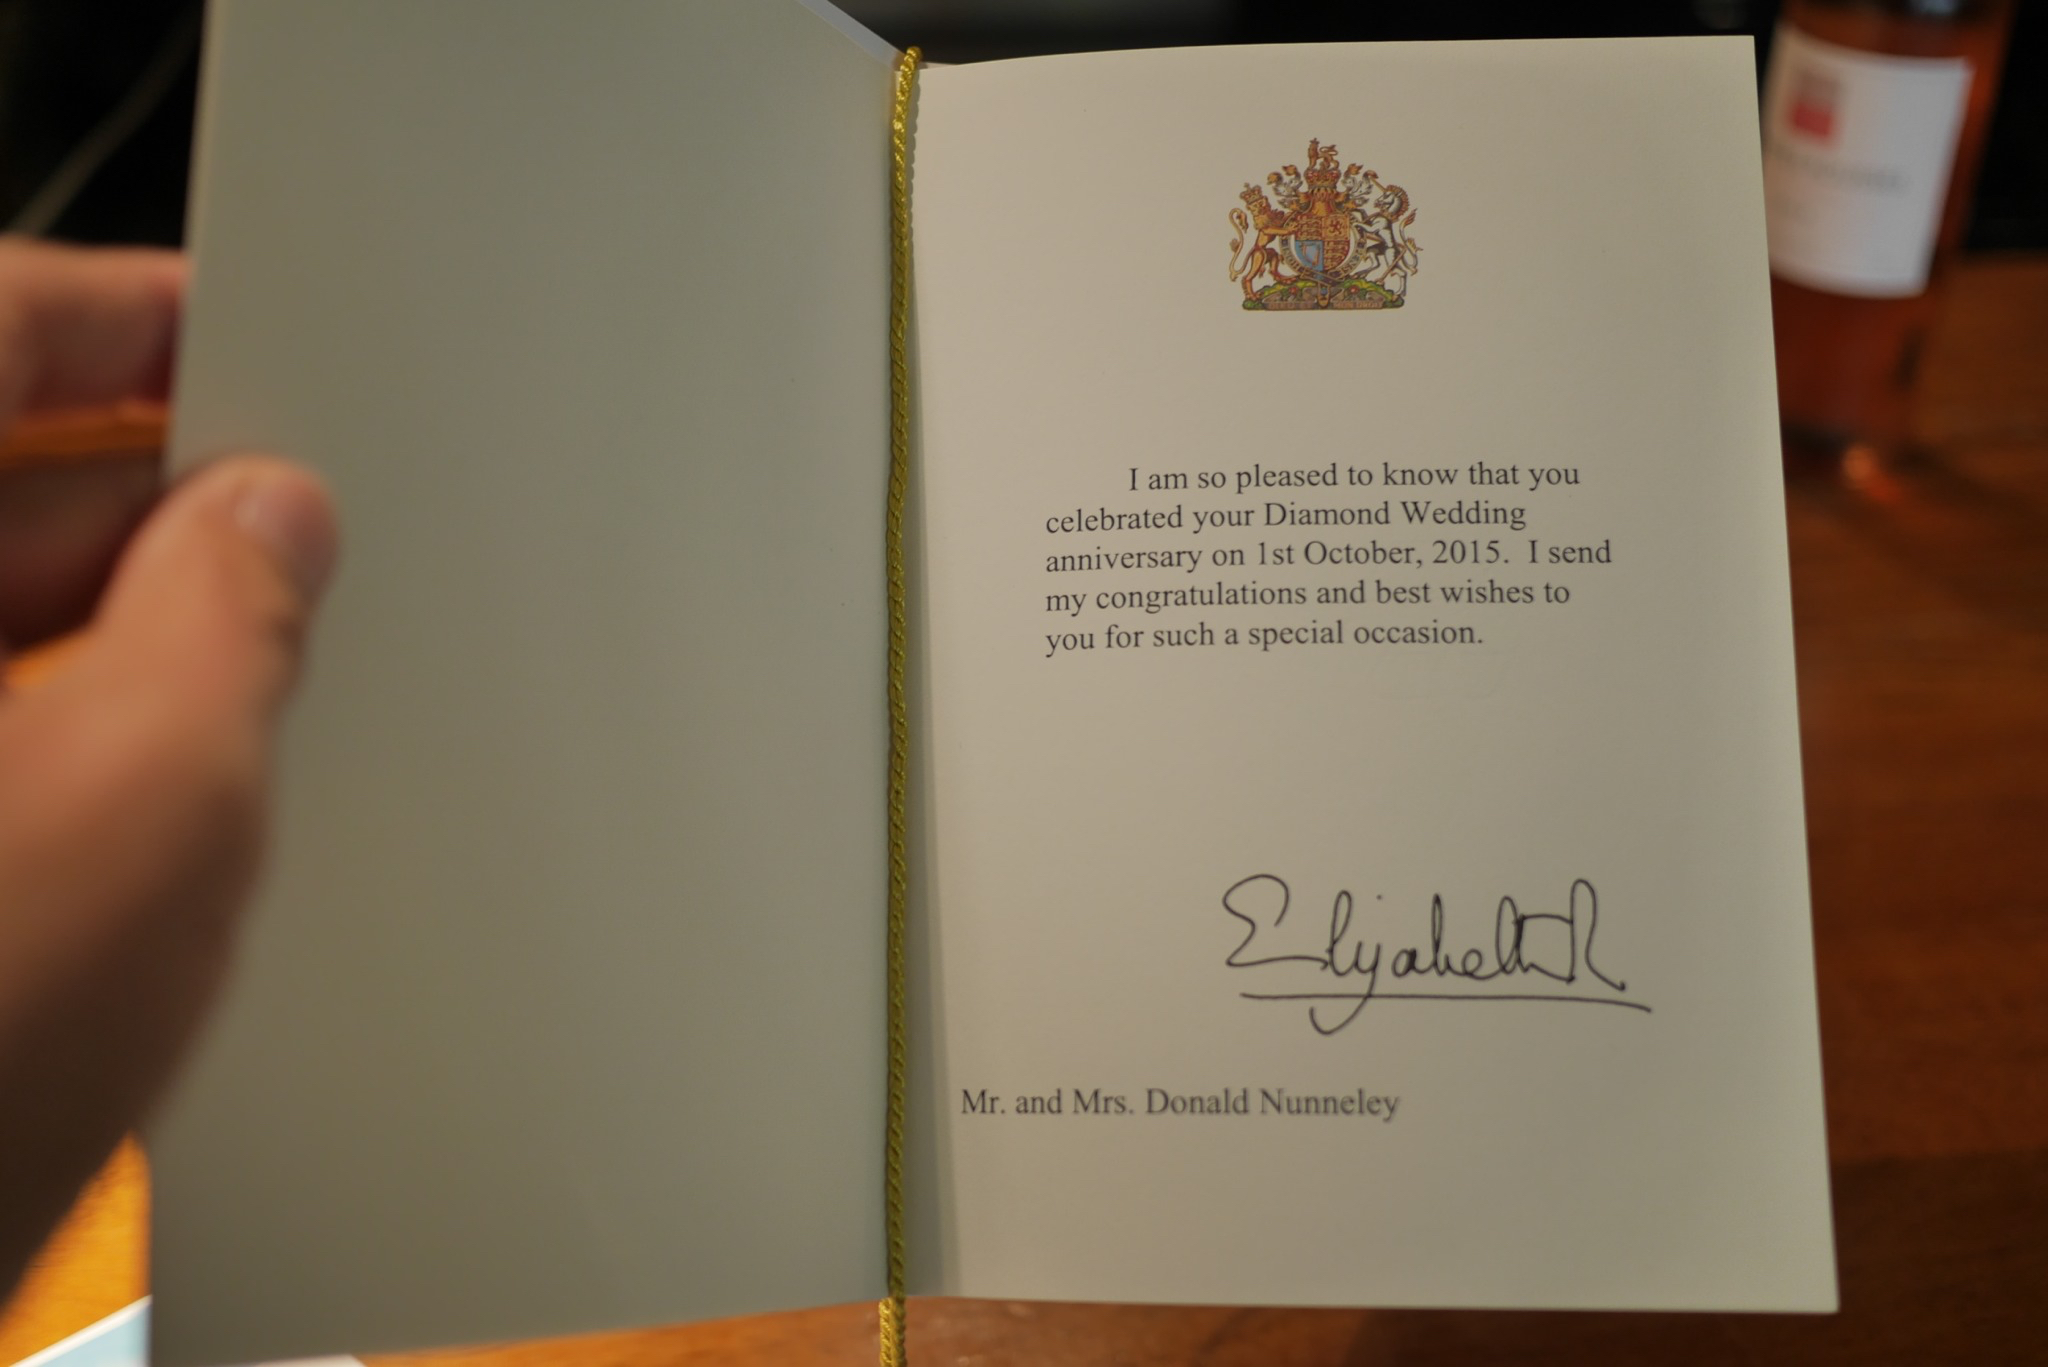 I am so pleased to know that you
celebrated your Diamond Wedding
anniversary on 1st October, 2015.  I send
my congratulations and best wishes to
you for such a special occasion.
Elizabeth R
Mr. and Mrs. Donald Nunneley